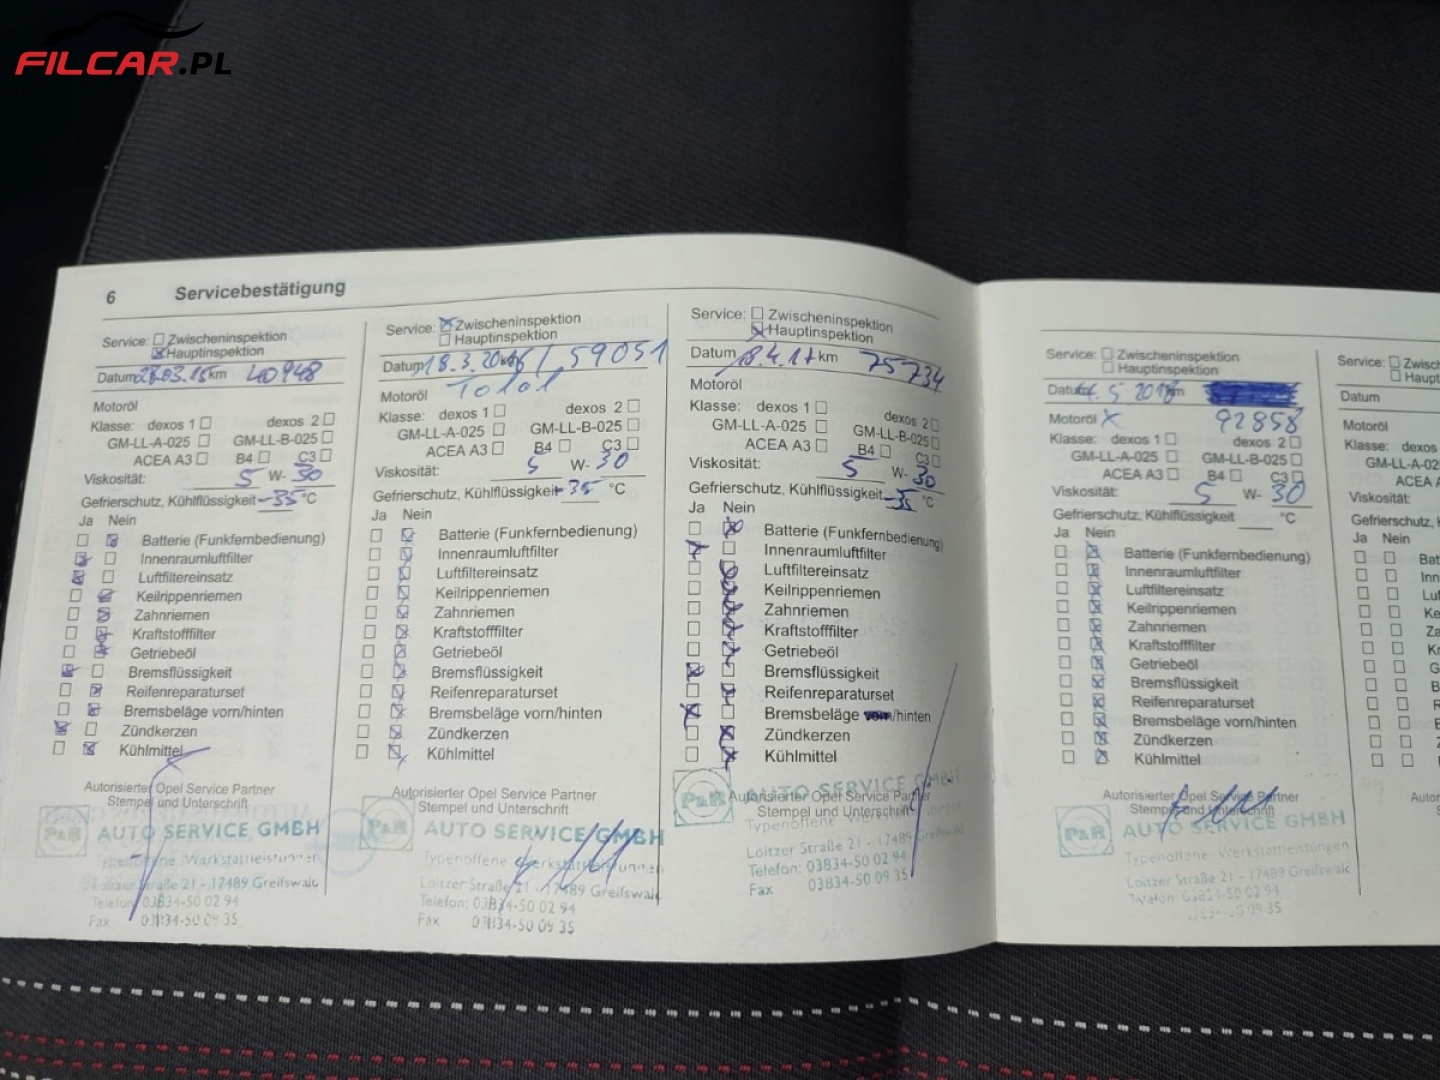 FILCAR.PL
6 Servicebestätigung
Service: Zwischeninspektion
Hauptinspektion
Datum 03.15 km 40948
Motoröl
Klasse: dexos 1 dexos 2
GM-LL-A-025 GM-LL-B-025
ACEA A3 B4 C3
Viskosität: 5 W- 30
Gefrierschutz, Kühlflüssigkeit -35 °C
Ja Nein
Batterie (Funkfernbedienung)
Innenraumluftfilter
Luftfiltereinsatz
Keilrippenriemen
Zahnriemen
Kraftstofffilter
Getriebeöl
Bremsflüssigkeit
Reifenreparaturset
Bremsbeläge vorn/hinten
Zündkerzen
Kühlmittel
Autorisierter Opel Service Partner
Stempel und Unterschrift
P&R AUTO SERVICE GMBH
Typenoffene Werkstattleistungen
Loitzer Straße 21 - 17489 Greifswald
Telefon: 03834-50 02 94
Fax 03834-50 09 35
Service: Zwischeninspektion
Hauptinspektion
Datum 18.3. 59051
Motoröl
Klasse: dexos 1 dexos 2
GM-LL-A-025 GM-LL-B-025
ACEA A3 B4 C3
Viskosität: 5 W- 30
Gefrierschutz, Kühlflüssigkeit -35 °C
Ja Nein
Batterie (Funkfernbedienung)
Innenraumluftfilter
Luftfiltereinsatz
Keilrippenriemen
Zahnriemen
Kraftstofffilter
Getriebeöl
Bremsflüssigkeit
Reifenreparaturset
Bremsbeläge vorn/hinten
Zündkerzen
Kühlmittel
Autorisierter Opel Service Partner
Stempel und Unterschrift
P&R AUTO SERVICE GMBH
Typenoffene Werkstattleistungen
Loitzer Straße 21 - 17489 Greifswald
Telefon: 03834-50 02 94
Fax 03834-50 09 35
Service: Zwischeninspektion
Hauptinspektion
Datum 18.4.17 km 75734
Motoröl
Klasse: dexos 1 dexos 2
GM-LL-A-025 GM-LL-B-025
ACEA A3 B4 C3
Viskosität: 5 W- 30
Gefrierschutz, Kühlflüssigkeit -35 °C
Ja Nein
Batterie (Funkfernbedienung)
Innenraumluftfilter
Luftfiltereinsatz
Keilrippenriemen
Zahnriemen
Kraftstofffilter
Getriebeöl
Bremsflüssigkeit
Reifenreparaturset
Bremsbeläge vorn/hinten
Zündkerzen
Kühlmittel
Autorisierter Opel Service Partner
Stempel und Unterschrift
P&R AUTO SERVICE GMBH
Typenoffene
Loitzer Straße 21 - 17489 Greifswald
Telefon: 03834-50 02 94
Fax 03834-50 09 35
Service: Zwischeninspektion
Hauptinspektion
Datum 5 2018 km
Motoröl X 92858
Klasse: dexos 1 dexos 2
GM-LL-A-025 GM-LL-B-025
ACEA A3 B4 C3
Viskosität: 5 W- 30
Gefrierschutz, Kühlflüssigkeit °C
Ja Nein
Batterie (Funkfernbedienung)
Innenraumluftfilter
Luftfiltereinsatz
Keilrippenriemen
Zahnriemen
Kraftstofffilter
Getriebeöl
Bremsflüssigkeit
Reifenreparaturset
Bremsbeläge vorn/hinten
Zündkerzen
Kühlmittel
Autorisierter Opel Service Partner
Stempel und Unterschrift
P&R AUTO SERVICE GMBH
Typenoffene Werkstattleistungen
Loitzer Straße 21 - 17489 Greifswald
Telefon: 03834-50 02 94
Service: Zwisch
Haupt
Datum
Motoröl
Klasse: dexos
GM-LL-A-02
ACEA A
Viskosität:
Gefrierschutz, K
Ja Nein